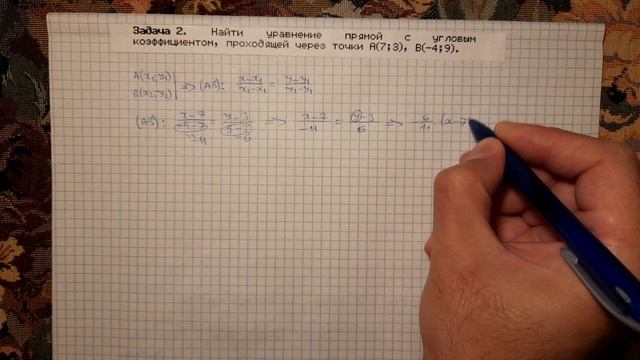 Задача 2. Найти уравнение прямой с угловым
коэффициентом, проходящей через точки A(7;3), B(-4;9).
A(x₁;y₁)
B(x₂;y₂) | => (AB): (x-x₁)/(x₂-x₁) = (y-y₁)/(y₂-y₁)
(AB): (x-7)/(-4-7) = (y-3)/(9-3) => (x-7)/(-11) = (y-3)/6 => -6/11 · (x-7
-11 6